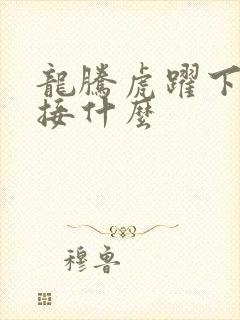 龍騰虎躍下
接什麼
穆鲁